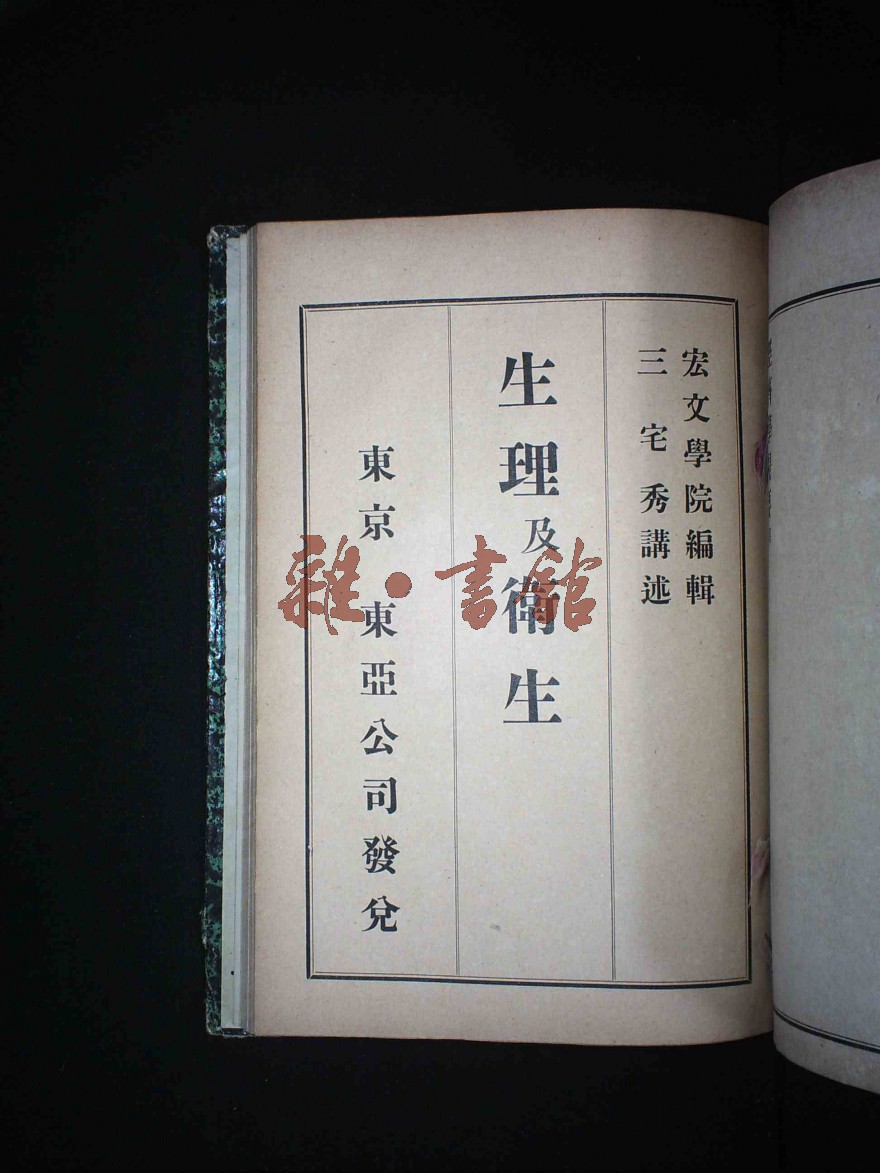 宏文學院編輯
三宅秀講述
生理及衛生
東京 東亞公司發兌
雜·書館